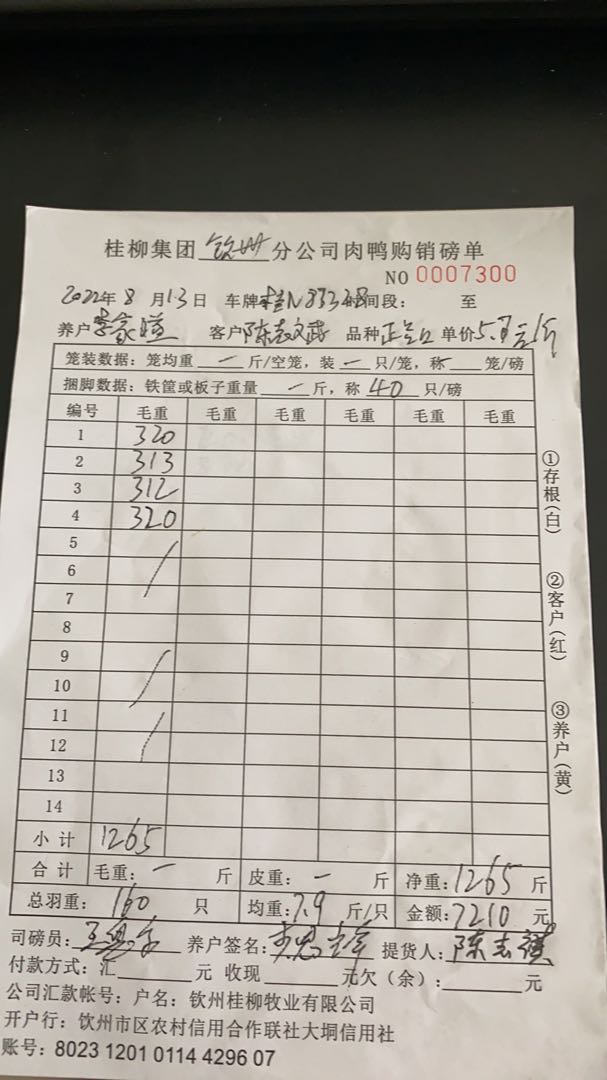 桂柳集团钦州分公司肉鸭购销磅单
NO 0007300
2022年8月13日 车牌 时间段: 至
养户 李家 客户 陈志 品种 单价5.7元/斤
笼装数据:笼均重 一 斤/空笼,装 一 只/笼,称 一 笼/磅
捆脚数据:铁筐或板子重量 一 斤,称 40 只/磅
编号 毛重 毛重 毛重 毛重 毛重 毛重
1 320
2 313
3 312
4 320
5
6
7
8
9
10
11
12
13
14
小计 1265
合计 毛重: 一 斤 皮重: 一 斤 净重:1265 斤
总羽重: 160 只 均重:7.9 斤/只 金额:7210 元
司磅员: 养户签名: 提货人:陈志
付款方式:汇 元 收现 元欠(余): 元
公司汇款帐号:户名:钦州桂柳牧业有限公司
开户行:钦州市区农村信用合作联社大垌信用社
账号:8023 1201 0114 4296 07
①存根(白)
②客户(红)
③养户(黄)